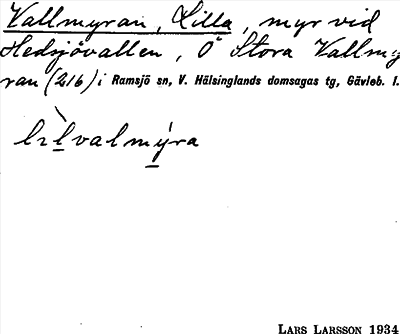 Vallmyran, Lilla, myr vid
Hedsjövallen, O Stora Vallmy
ran (216) i Ramsjö sn, V. Hälsinglands domsagas tg, Gävleb. l.
lìlvalmýra
LARS LARSSON 1934